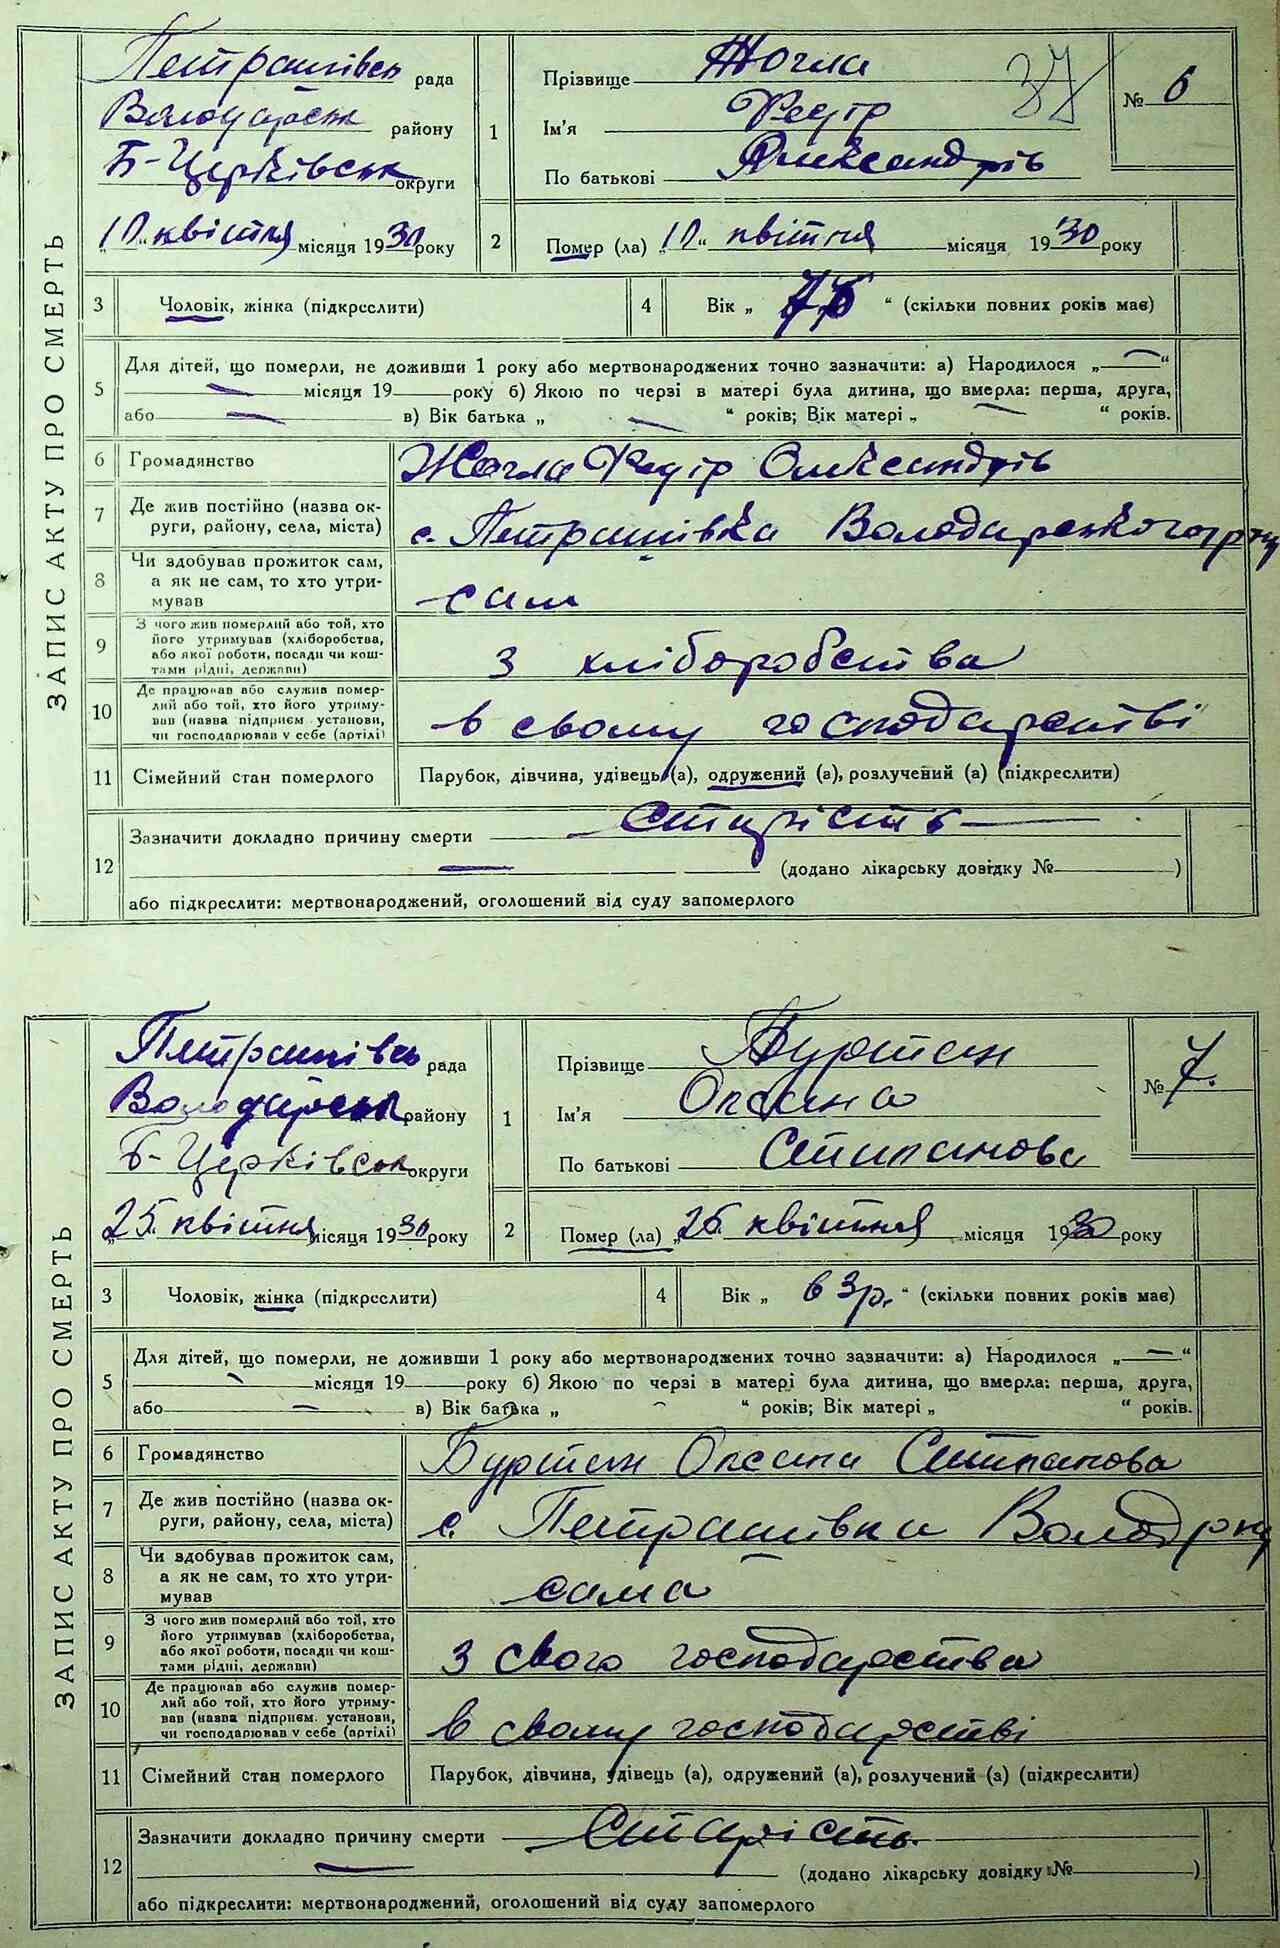 ЗАПИС АКТУ ПРО СМЕРТЬ
Петрашківсь рада
Володарськ району
Б-Церківськ округи
"10" квітня місяця 1930 року
1
Прізвище Жогла
Ім'я Федір
По батькові Олександрів
37
№ 6
2 Помер (ла) "10" квітня місяця 1930 року
3 Чоловік, жінка (підкреслити)
4 Вік " " (скільки повних років має)
5 Для дітей, що померли, не доживши 1 року або мертвонароджених точно зазначити: а) Народилося „—“
— місяця 19 року б) Якою по черзі в матері була дитина, що вмерла: перша, друга,
або — в) Вік батька „ — “ років; Вік матері „ — “ років.
6 Громадянство Жогла Федір Олександрів
7 Де жив постійно (назва ок-
руги, району, села, міста) с. Петрашівка Володарського р-ну
8 Чи здобував прожиток сам,
а як не сам, то хто утри-
мував сам
9 З чого жив померлий або той, хто
його утримував (хліборобства,
або якої роботи, посади чи кош-
тами рідні, держави) З хліборобства
10 Де працював або служив помер-
лий або той, хто його утриму-
вав (назва підприєм установи,
чи господарював у себе (артілі) в свому господарстві
11 Сімейний стан померлого Парубок, дівчина, удівець (а), одружений (а), розлучений (а) (підкреслити)
12 Зазначити докладно причину смерти Старість
— (додано лікарську довідку № )
або підкреслити: мертвонароджений, оголошений від суду запомерлого
ЗАПИС АКТУ ПРО СМЕРТЬ
Петрашківсь рада
Володарськ району
Б-Церківськ округи
"25" квітня місяця 1930 року
1
Прізвище Буртян
Ім'я Оксана
По батькові Степанова
№ 7.
2 Помер (ла) "25" квітня місяця 1930 року
3 Чоловік, жінка (підкреслити)
4 Вік „ 63 р. “ (скільки повних років має)
5 Для дітей, що померли, не доживши 1 року або мертвонароджених точно зазначити: а) Народилося „—“
— місяця 19 року б) Якою по черзі в матері була дитина, що вмерла: перша, друга,
або — в) Вік батька „ — “ років; Вік матері „ “ років.
6 Громадянство Буртян Оксана Степанова
7 Де жив постійно (назва ок-
руги, району, села, міста) с. Петрашівка Волод р-ну
8 Чи здобував прожиток сам,
а як не сам, то хто утри-
мував сама
9 З чого жив померлий або той, хто
його утримував (хліборобства,
або якої роботи, посади чи кош-
тами рідні, держави) З свого господарства
10 Де працював або служив помер-
лий або той, хто його утриму-
вав (назва підприєм. установи,
чи господарював у себе (артілі) в свому господарстві
11 Сімейний стан померлого Парубок, дівчина, удівець (а), одружений (а), розлучений (а) (підкреслити)
12 Зазначити докладно причину смерти Старість.
— (додано лікарську довідку № )
або підкреслити: мертвонароджений, оголошений від суду запомерлого